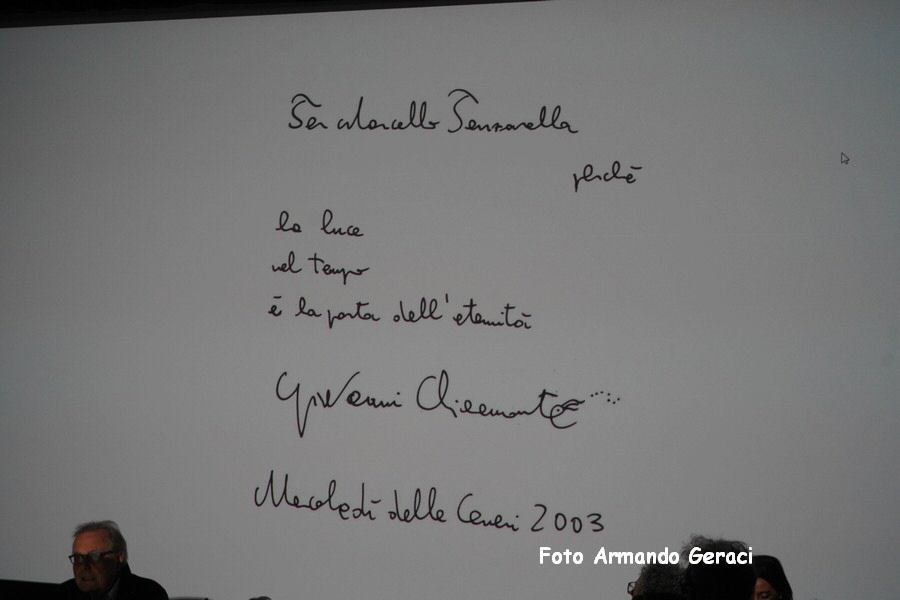 Per Marcello Panzarella
perchè
la luce
nel tempo
è la porta dell'eternità
Giovanni Chiaramonte
Mercoledì delle Ceneri 2003
Foto Armando Geraci